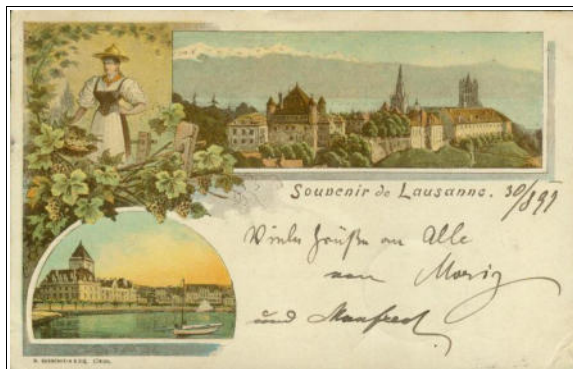 Souvenir de Lausanne. 30/8 97
Viele Grüße an Alle
von Moriz
und Manfred.